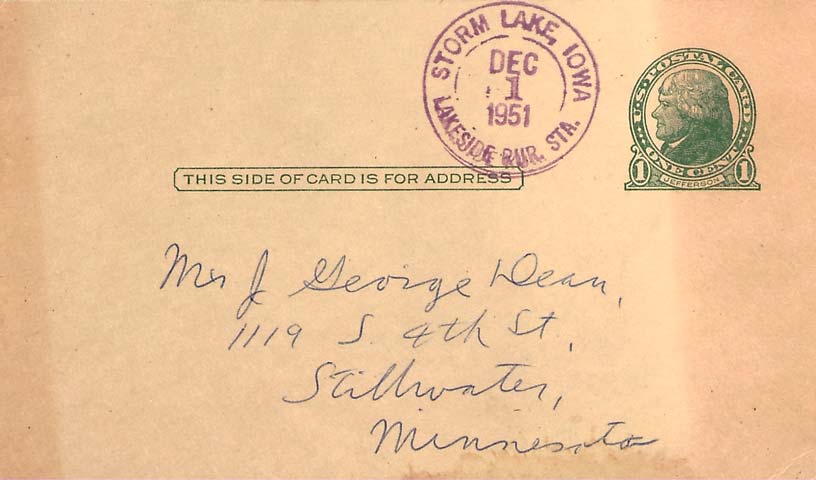 STORM LAKE, IOWA
DEC
1
1951
LAKESIDE RUR. STA.
U.S. POSTAL CARD
1 ONE CENT 1
JEFFERSON
THIS SIDE OF CARD IS FOR ADDRESS
Mr J George Dean,
1119 S. 4th St,
Stillwater,
Minnesota